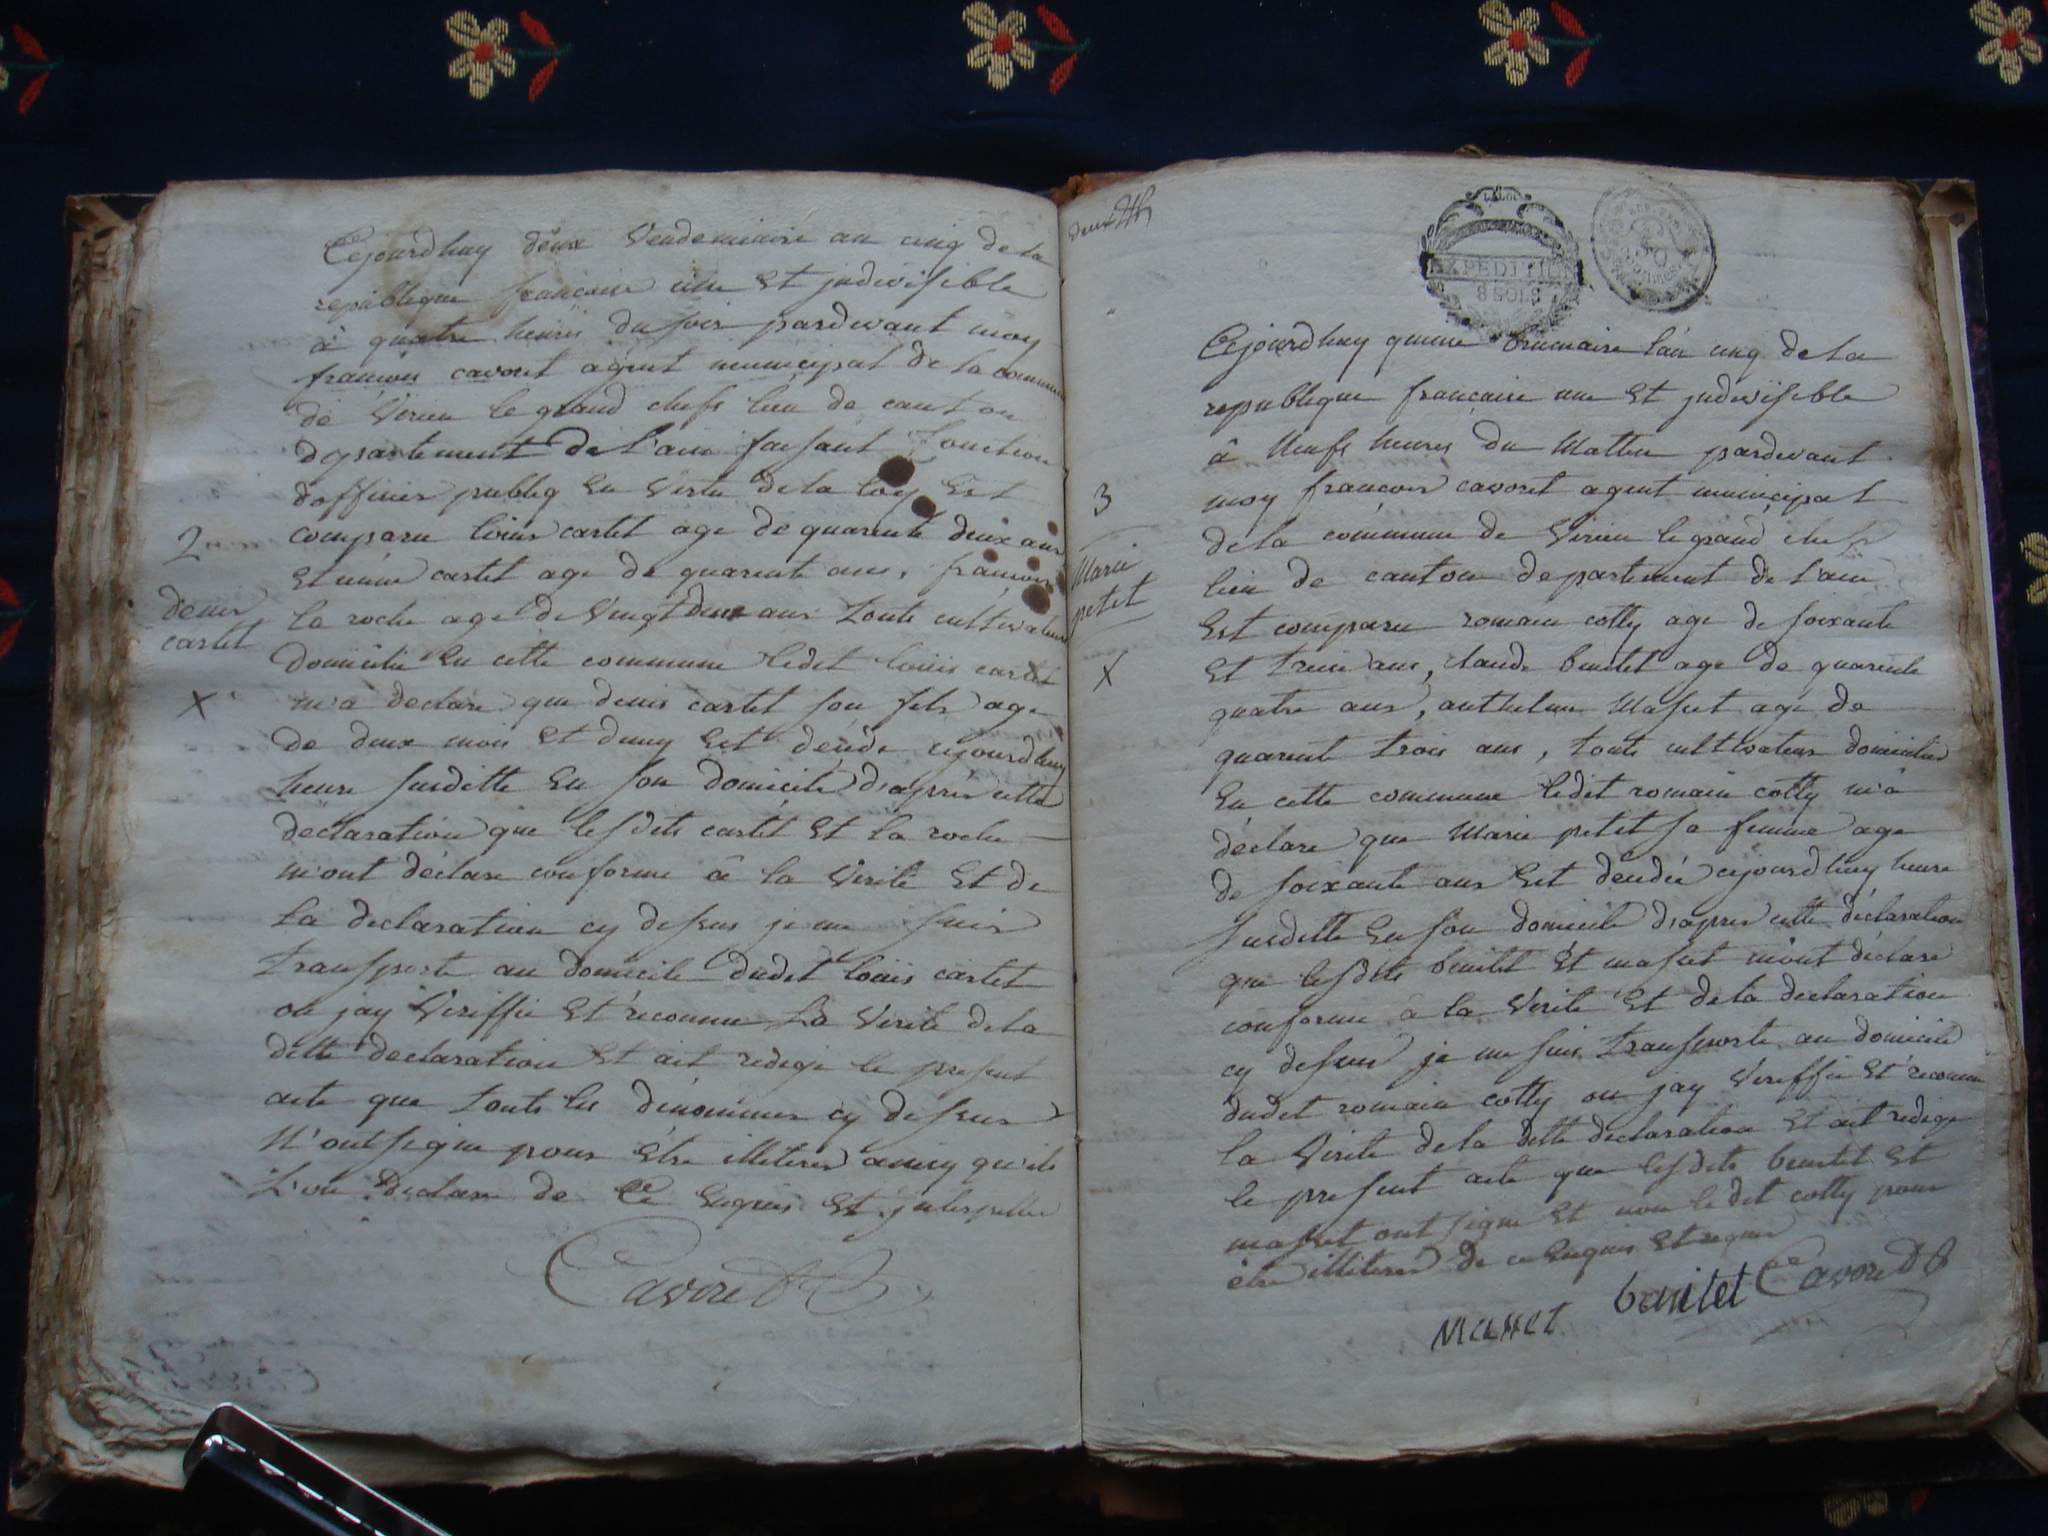 Cejourdhuy deux Vendemiaire an cinq de la
republique francaise une Et jndivisible
à quatre heures du soir pardevant moy
francois cavoret agent municipal de la commune
de Virieu le grand chefs lieu de canton
departement de l'ain faisant fonction
dofficier publiq En Vertu de la loy Est
comparu louis cartet age de quarente deux ans
Et cartet age de quarente ans, francois
la roche age de Vingt deux ans touts cultivateurs
domicilié En cette commune ledit louis cartet
m'a declare que denis cartet son fils age
de deux mois Et demy Est dédé cejourdhuy
heure susditte En son domicile d'apres cette
declaration que lesdits cartet Et la roche
m'ont déclare conforme â la Verité Et de
la declaration cy dessus je me suis
transporte au domicile dudit louis cartet
ou jay Veriffie Et reconnu la Verite de la
ditte declaration Et ait redige le present
acte que touts les dénommes cy dessus
N'ont signe pour être illiteres ainsy qu'ils
l'on declare de Ce Enquis Et jnterpelles
Cavoret
2
denis
cartet
X
deux
LA LOI
EXPEDITION
8 SOLS
REP. FRA.
Cejourdhuy quinze brumaire l'an cinq de la
republique francaise une Et jndivisible
â Neufs heures du Mattin pardevant
moy francois cavoret agent municipal
de la commune de Virieu le grand chefs
lieu de canton departement de l'ain
Est comparu romain cotty age de soixante
et treize ans, claude benitet age de quarente
quatre ans, anthelme Masset age de
quarente trois ans, touts cultivateurs domicilies
En cette commune ledit romain cotty m'a
déclare que Marie petit sa femme age
de soixante ans Est dédée cejourdhuy heure
susditte En son domicile d'apres cette déclaration
que lesdits benitet Et masset m'ont déclare
conforme â la Verite Et de la declaration
cy dessus je me suis transporte au domicile
dudit romain cotty ou jay Veriffie Et reconnu
la Verite de la ditte declaration Et ait redige
le present acte que lesdits benitet Et
masset ont signe Et non ledit cotty pour
être illiteres de ce Enquis Et requis
Masset benitet Cavoret
3
Marie
petit
X